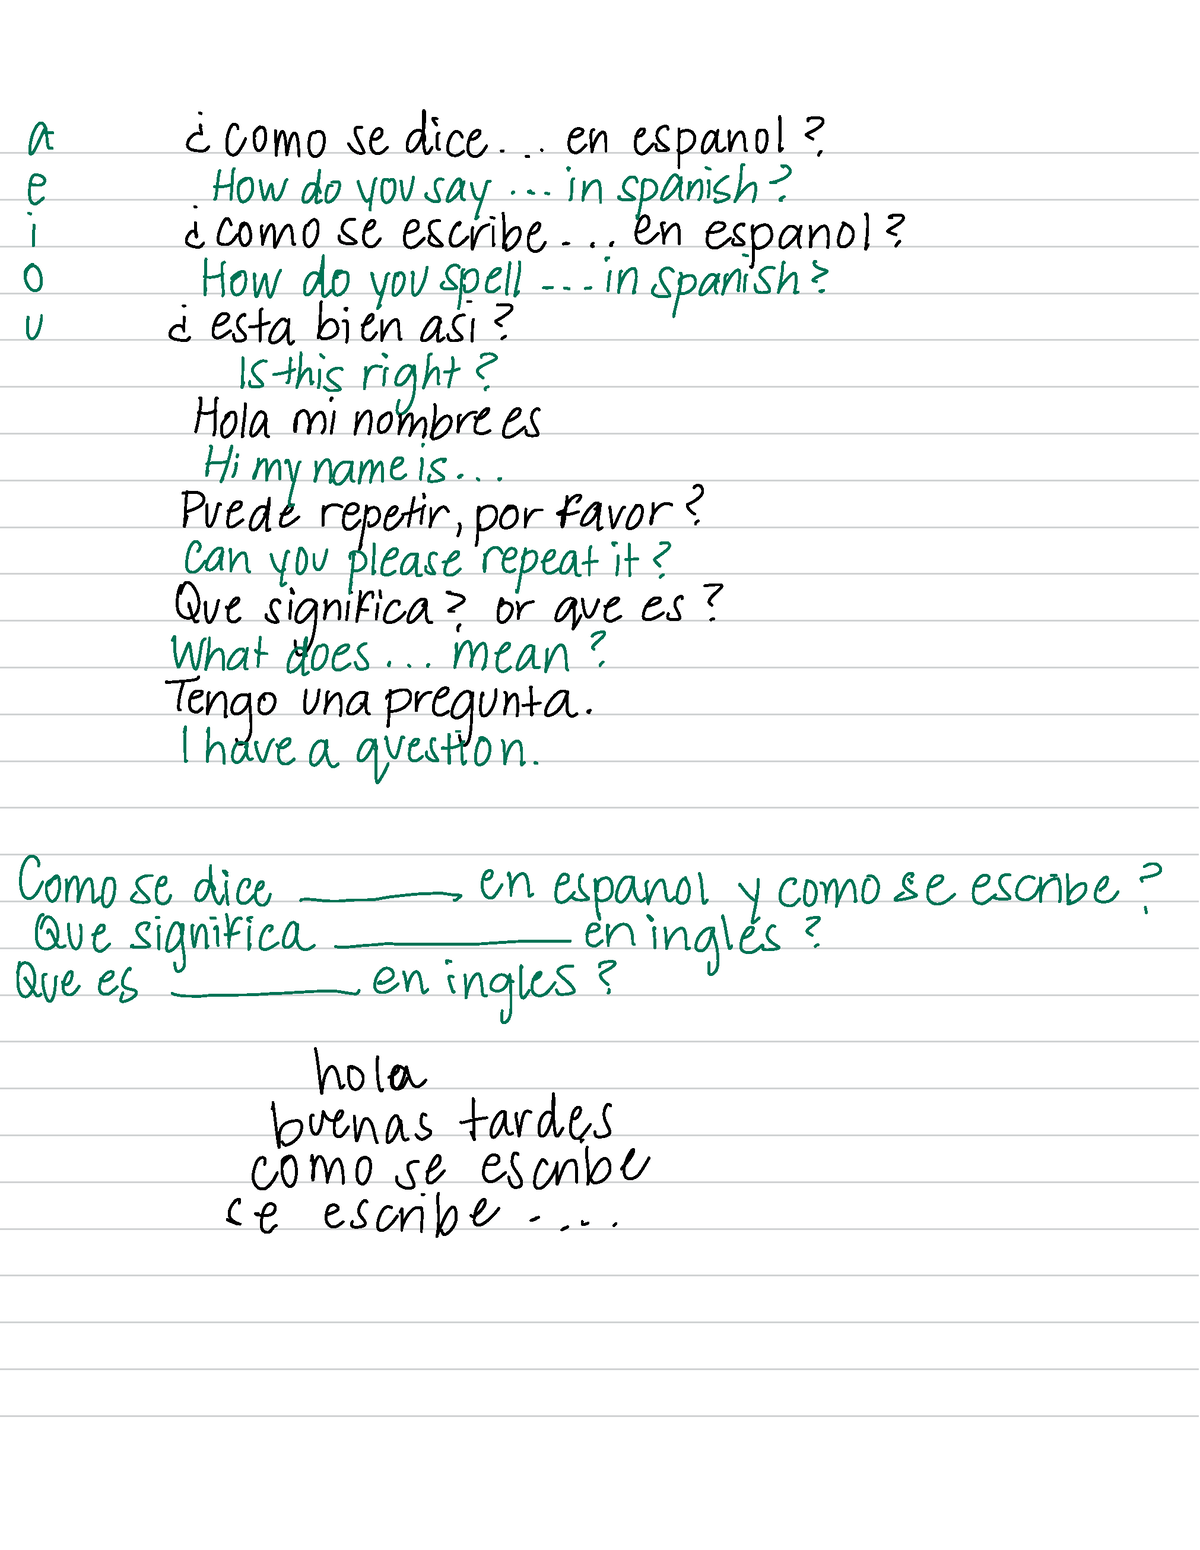 a
e
i
o
u
¿como se dice... en espanol?
How do you say ... in spanish?
¿como se escribe... en espanol?
How do you spell ---in spanish?
¿esta bien asi?
Is this right?
Hola mi nombre es
Hi my name is...
Puede repetir, por favor?
Can you please repeat it?
Que significa? or que es?
What does... mean?
Tengo una pregunta.
I have a question.
Como se dice ________ en espanol y como se escribe?
Que significa ________ en ingles?
Que es ________ en ingles?
hola
buenas tardes
como se escribe
se escribe ....